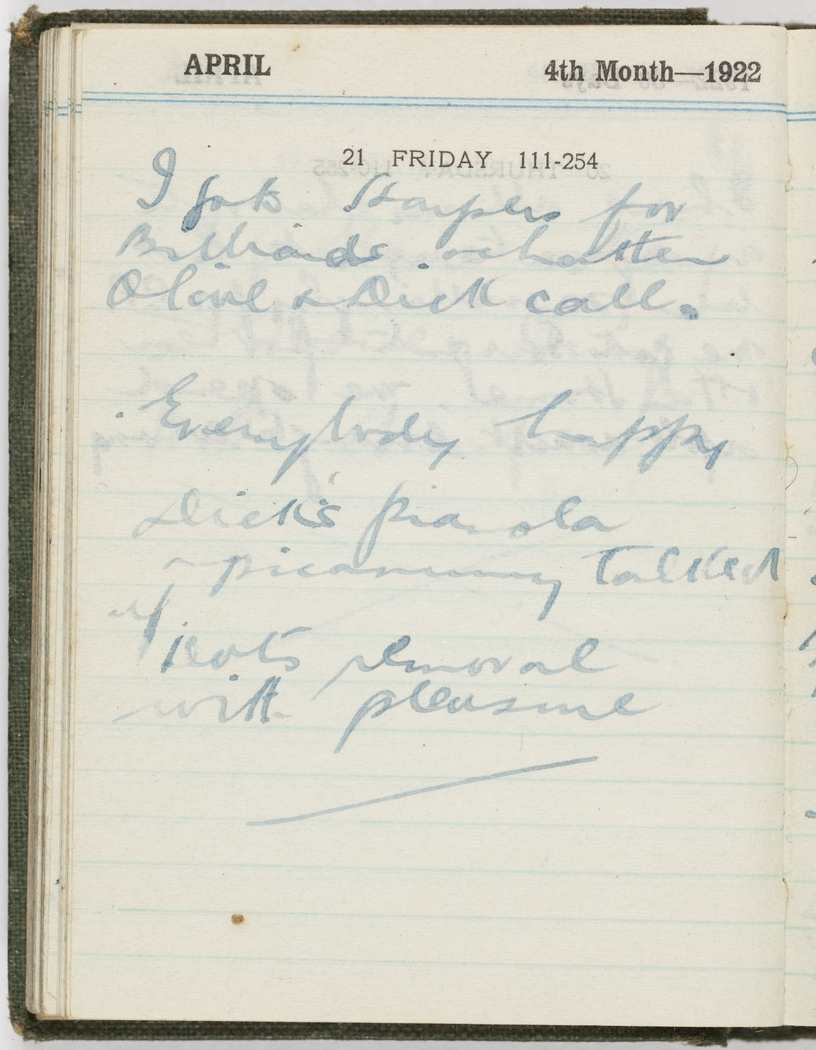 APRIL 4th Month—1922
21 FRIDAY 111-254
I to Harpers for
Billiards. other
Olive & Dick call.
Everybody happy
Dick's pianola
talked
of Dots removal
with pleasure